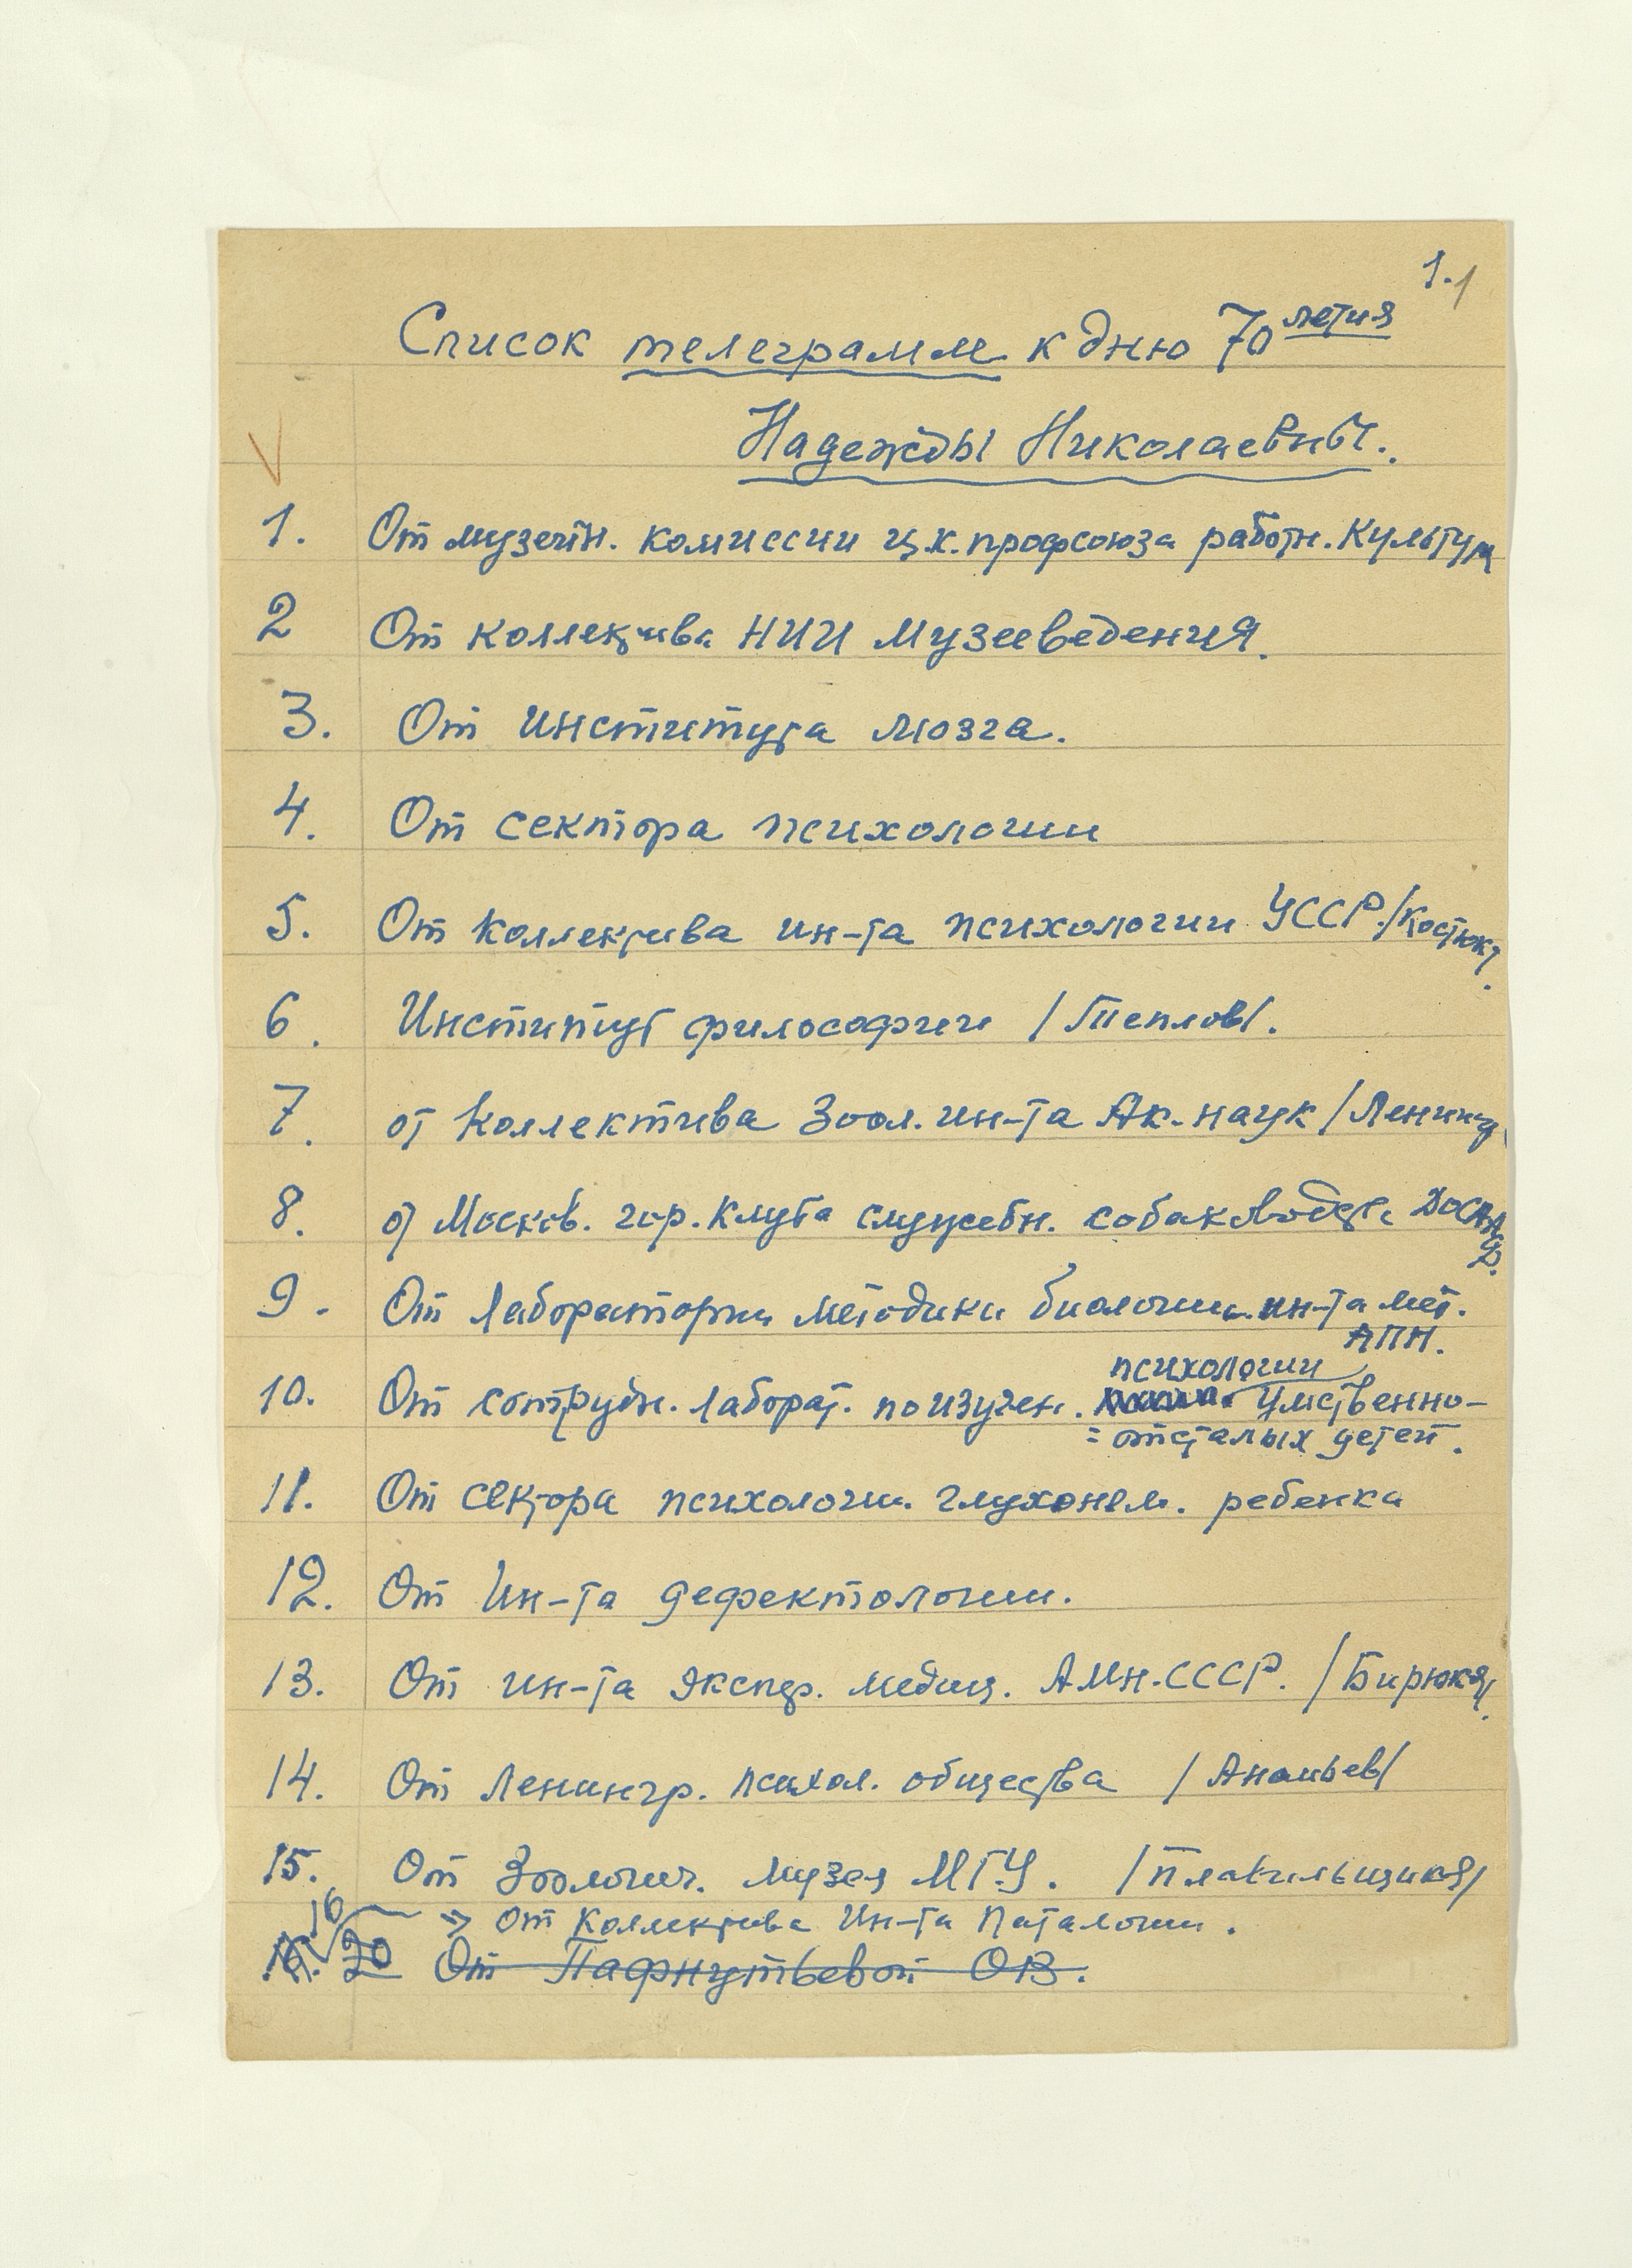 1. 1
Список телеграмм к дню 70 летия
Надежды Николаевны.
1. От музейн. комиссии ц.к. профсоюза работн. Культуры
2 От коллектива НИИ Музееведения.
3. От Института мозга.
4. От сектора психологии
5. От коллектива ин-та психологии УССР. /Костюк/.
6. Институт философии /Теплов/.
7. от Коллектива Зоол. ин-та Ак. наук /Ленингр.
8. от Москов. гор. Клуба служебн. собаководства ДОСААФ.
9. От Лаборатории методики биологии ин-та мет.
АПН.
психологии
10. От сотрудн. лаборат. по изучен. Умственно-
= отсталых детей.
11. От сектора психологии глухонем. ребенка
12. От Ин-та дефектологии.
13. От ин-та Экспер. медиц. АМН. СССР. /Бирюков/.
14. От Ленингр. психол. общества /Ананьев/
15. От Зоологич. музея МГУ. /Плавильщиков/
16 → от Коллектива Ин-та Паталогии.
20 От Пафнутьевой ОВ.